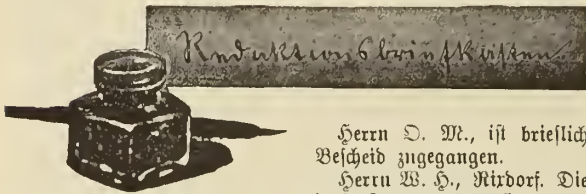 Redaktionsbriefkasten.
Herrn O. M., ist brieflich
Bescheid zugegangen.
Herrn W. H., Rixdorf. Die